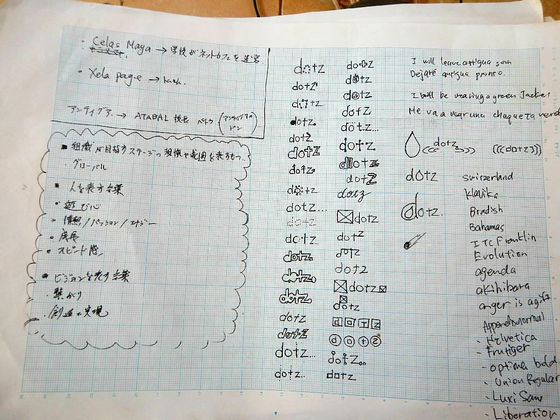 ・Celas Maya → 学校がネットカフェを運営
・Xela page →
アンティグア → ATABAL 校長
■ 組織が目指すステージ、
・グローバル
■ 人を表す言葉
・遊び心
・情熱/パッション/エナジー
・成長
・スピード感
■ ビジョンを表す言葉
・繋がり
・創造と実現
dotz
dotz
dotz
dotz
dotz
dotz
dotz
dotz
dotz
dotz...
dotz
dotz
dotz
dotz
dotz
dotz
dotz
dotz...
dotz...
dotz
dotz
dotz
dotz
dotz...
dotz
dotz
dotz
dotz
dotz
dotz
dotz
dotz
dotz
dotz
dotz
dotz
dotz..
dotz
I will leave antigua soon
Dejaré antigua pronto.
I will be wearing a green Jacket
Me va a
((dotz))) (((dotz)))
dotz
dotz.
switzerland
klavika
Brndish
Bahamas
ITC Franklin
Evolution
agenda
akihibara
anger is a
Helvetica
・frutiger
・optima bold
・Union Regular
・Luxi Sans
・Liberation